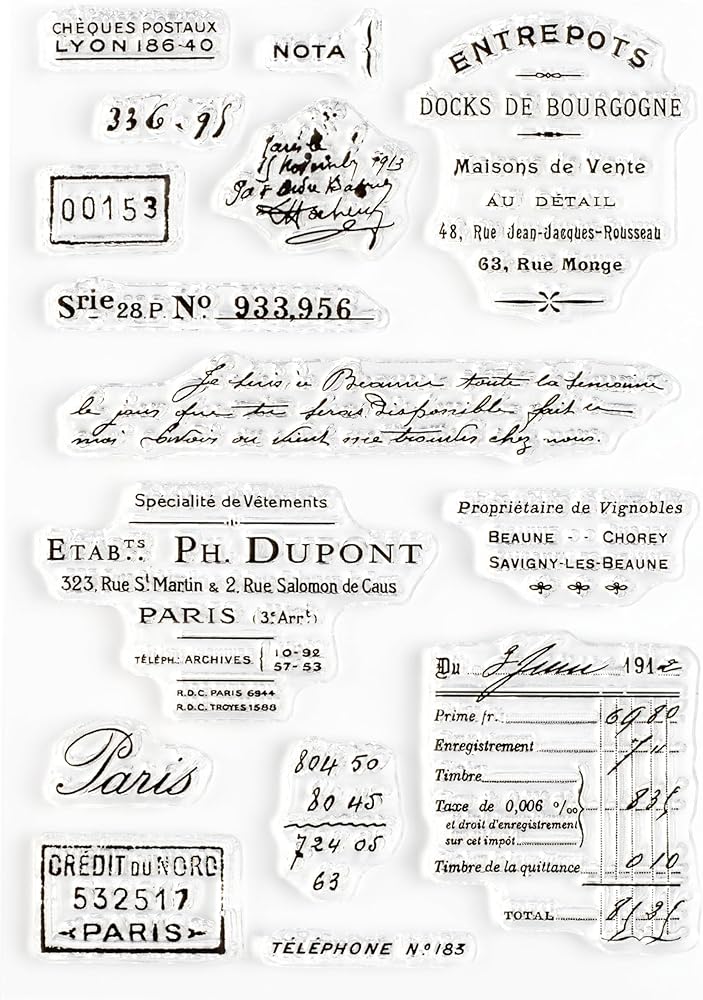 CHÈQUES POSTAUX
LYON 186-40
NOTA }
ENTREPOTS
DOCKS DE BOURGOGNE
Maisons de Vente
AU DÉTAIL
48, Rue Jean-Jacques-Rousseau
63, Rue Monge
336.95
Paris le
15 Novembre 1913
00153
Srie 28.P. No. 933,956
Je suis à Beaune toute la semaine
le jour que tu seras disponible fait le
moi savoir ou vient me trouver chez nous.
Spécialité de Vêtements
ETABTS. PH. DUPONT
323, Rue St Martin & 2, Rue Salomon de Caus
PARIS (3e Arrt)
TÉLÉPH: ARCHIVES { 10-92
57-53
R.D.C. PARIS 6944
R.D.C. TROYES 1588
Propriétaire de Vignobles
BEAUNE - - CHOREY
SAVIGNY-LES-BEAUNE
Du Juin 191
Prime fr. 69 80
Enregistrement 7 "
Timbre
Taxe de 0,006 ‰ 8 35
et droit d'enregistrement
sur cet impôt
Timbre de la quittance 0 10
TOTAL
Paris
804 50
80 45
724 05
63
CRÉDIT DU NORD
532517
PARIS
TÉLÉPHONE No. 183